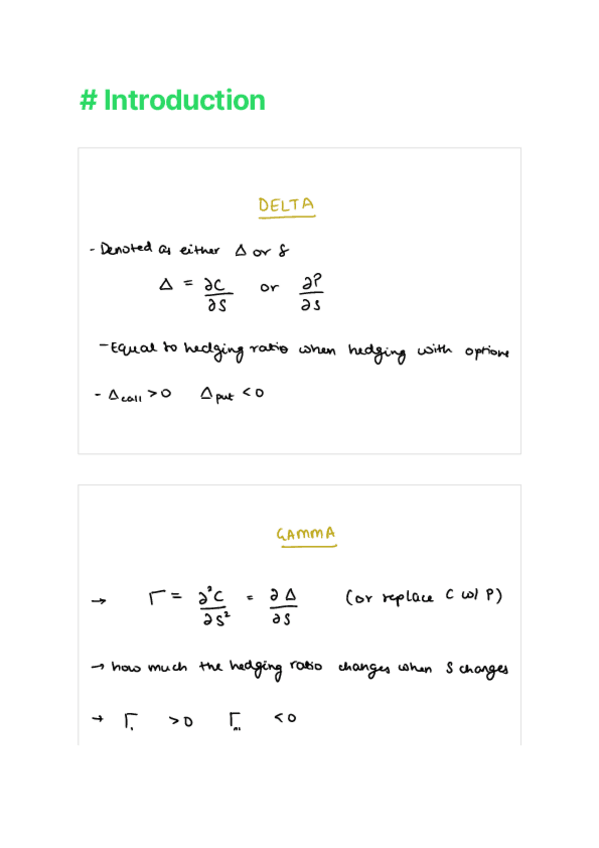 # Introduction
DELTA
- Denoted as either Δ or δ
Δ = ∂C/∂S or ∂P/∂S
- Equal to hedging ratio when hedging with options
- Δcall > 0 Δput < 0
GAMMA
→ Γ = ∂²C/∂S² = ∂Δ/∂S (or replace C w/ P)
→ how much the hedging ratio changes when S changes
→ Γ > 0 Γ < 0